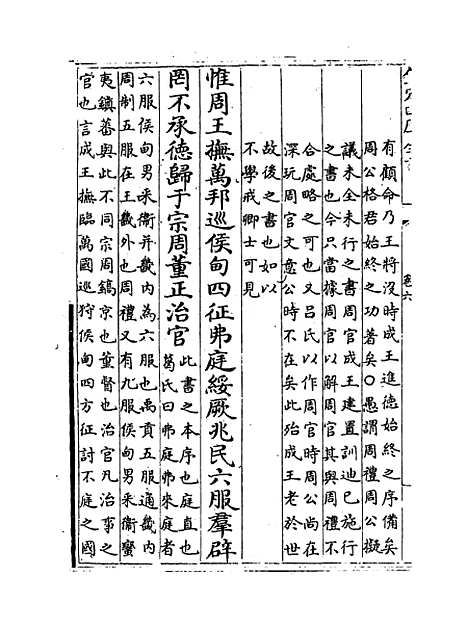 卷六
有顧命乃王將沒時成王進德始終之序備矣
周公格君始終之功著矣○愚謂周禮周公擬
議未全未行之書周官成王建置訓迪已施行
之書也今只當據周官以解周官其與周禮不
合處略之可也又吕氏以作周官時周公尚在
深玩周官文意公時不在矣此殆成王老於世
故後之書也如以
不學戒卿士可見
惟周王撫萬邦巡侯甸四征弗庭綏厥兆民六服羣辟
罔不承德歸于宗周董正治官
此書之本序也庭直也
葛氏曰弗庭弗來庭者
六服侯甸男采衛并畿内為六服也禹貢五服通畿内
周制五服在王畿外也周禮又有九服侯甸男采衛蠻
夷鎮蕃與此不同宗周鎬京也董督也治官凡治事之
官也言成王撫臨萬國巡狩侯甸四方征討不庭之國